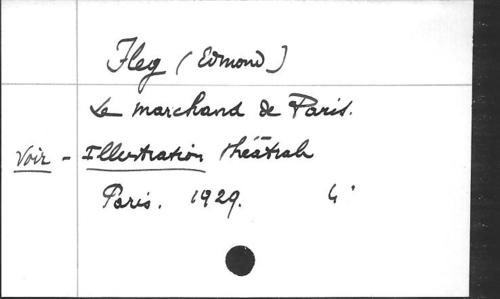 Fleg (Edmond)
Le marchand de Paris.
Voir - Illustration théâtrale
Paris. 1929. 4°